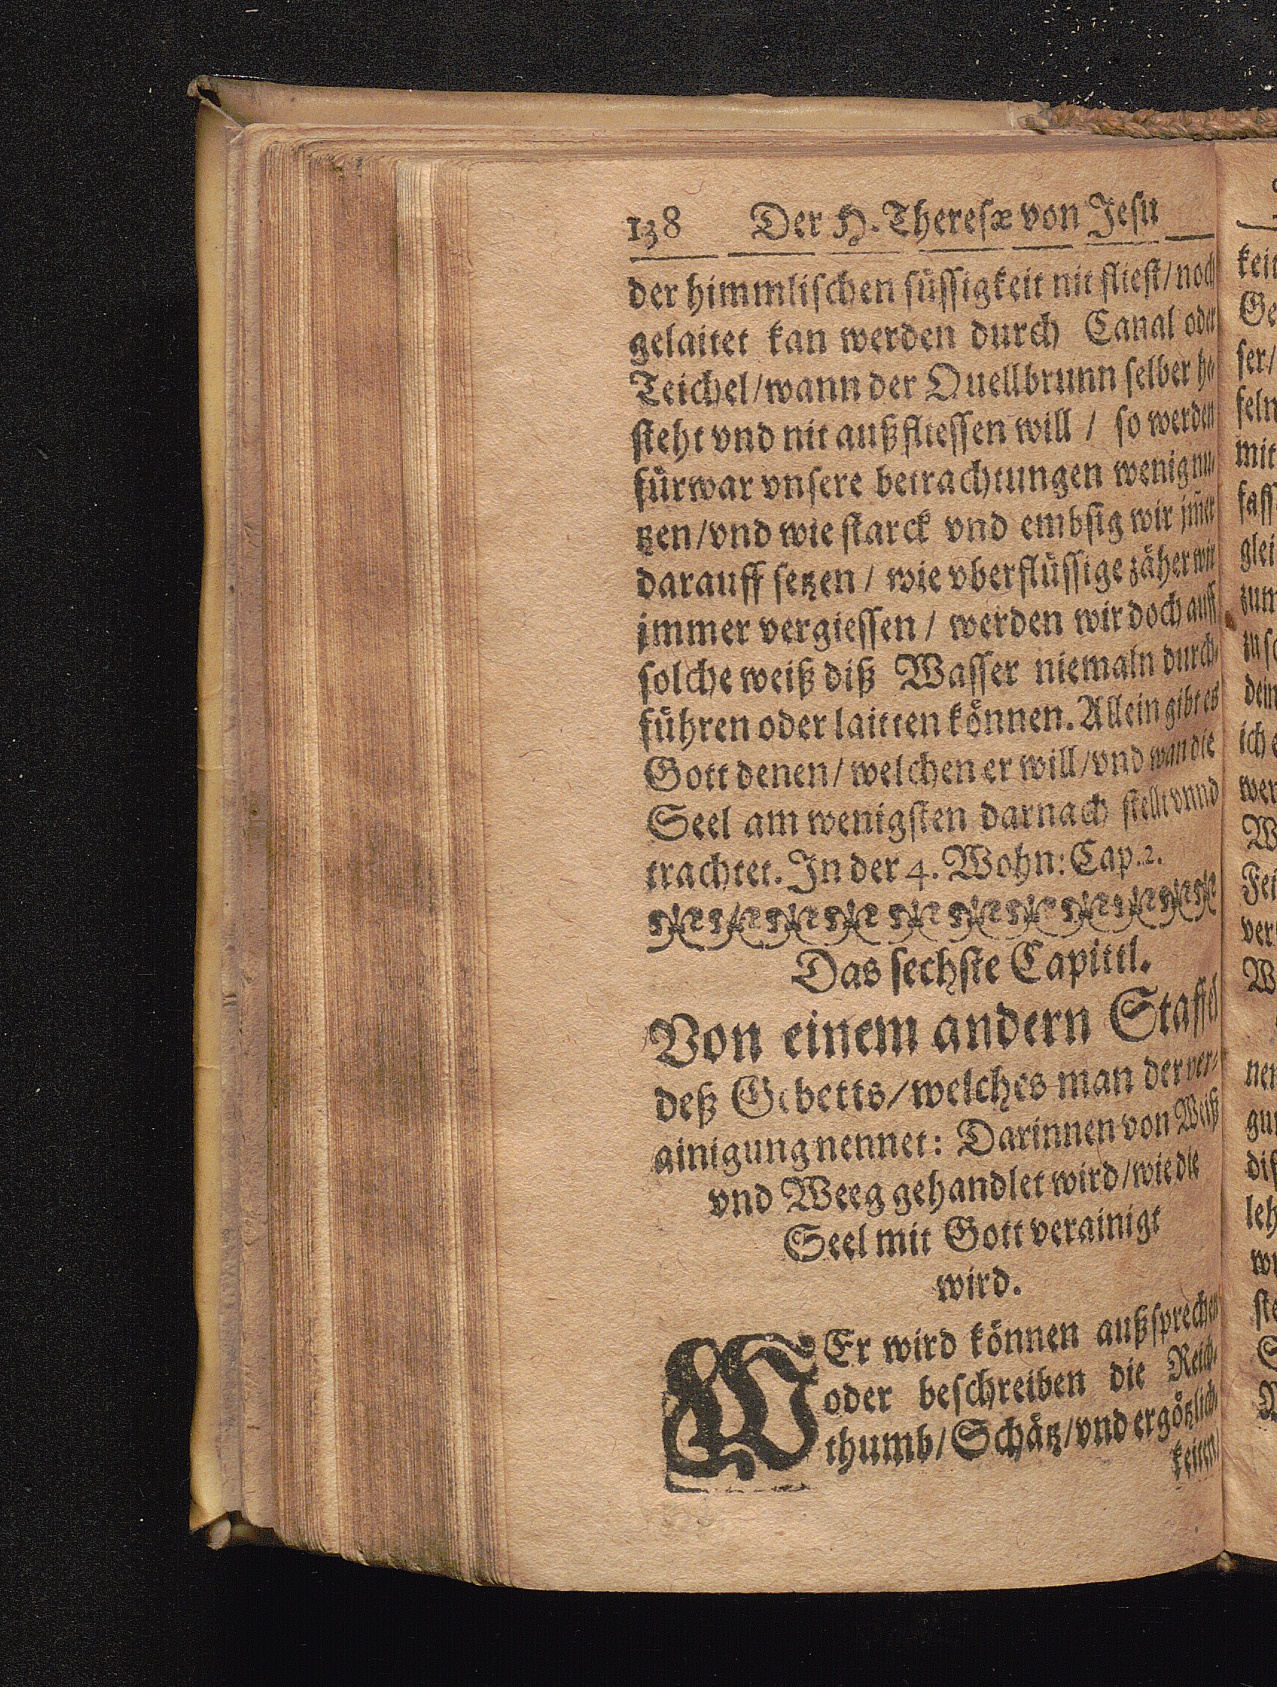 138 Der H. Theresæ von Jesu
der himmlischen süssigkeit nit fliest/ noch
gelaitet kan werden durch Canal oder
Teichel/ wann der Quellbrunn selber
steht vnd nit außfliessen will / so werden
fürwar vnsere betrachtungen wenig nu-
tzen/ vnd wie starck vnd embsig wir jm̃er
darauff setzen / wie vberflüssige zäher wir
jmmer vergiessen / werden wir doch auff
solche weiß diß Wasser niemaln durch-
führen oder laitten können. Allein gibt es
Gott denen/ welchen er will/ vnd wan die
Seel am wenigsten darnach stellt vnnd
trachtet. In der 4. Wohn: Cap. 2.
Das sechste Capittl.
Von einem andern Staffel
deß Gebetts/ welches man der ver-
ainigung nennet: Darinnen von Weiß
vnd Weeg gehandlet wird/ wie die
Seel mit Gott verainigt
wird.
WEr wird können außsprechen
oder beschreiben die Reich-
thumb/ Schätz/ vnd ergötzlich-
keiten/
kei
Ge
ser/
feln
mit
fass
glei
zum
zu sc
dein
ich
wer
W
Fei
ver
W
nen
gun
dis
leh
wu
ste
S